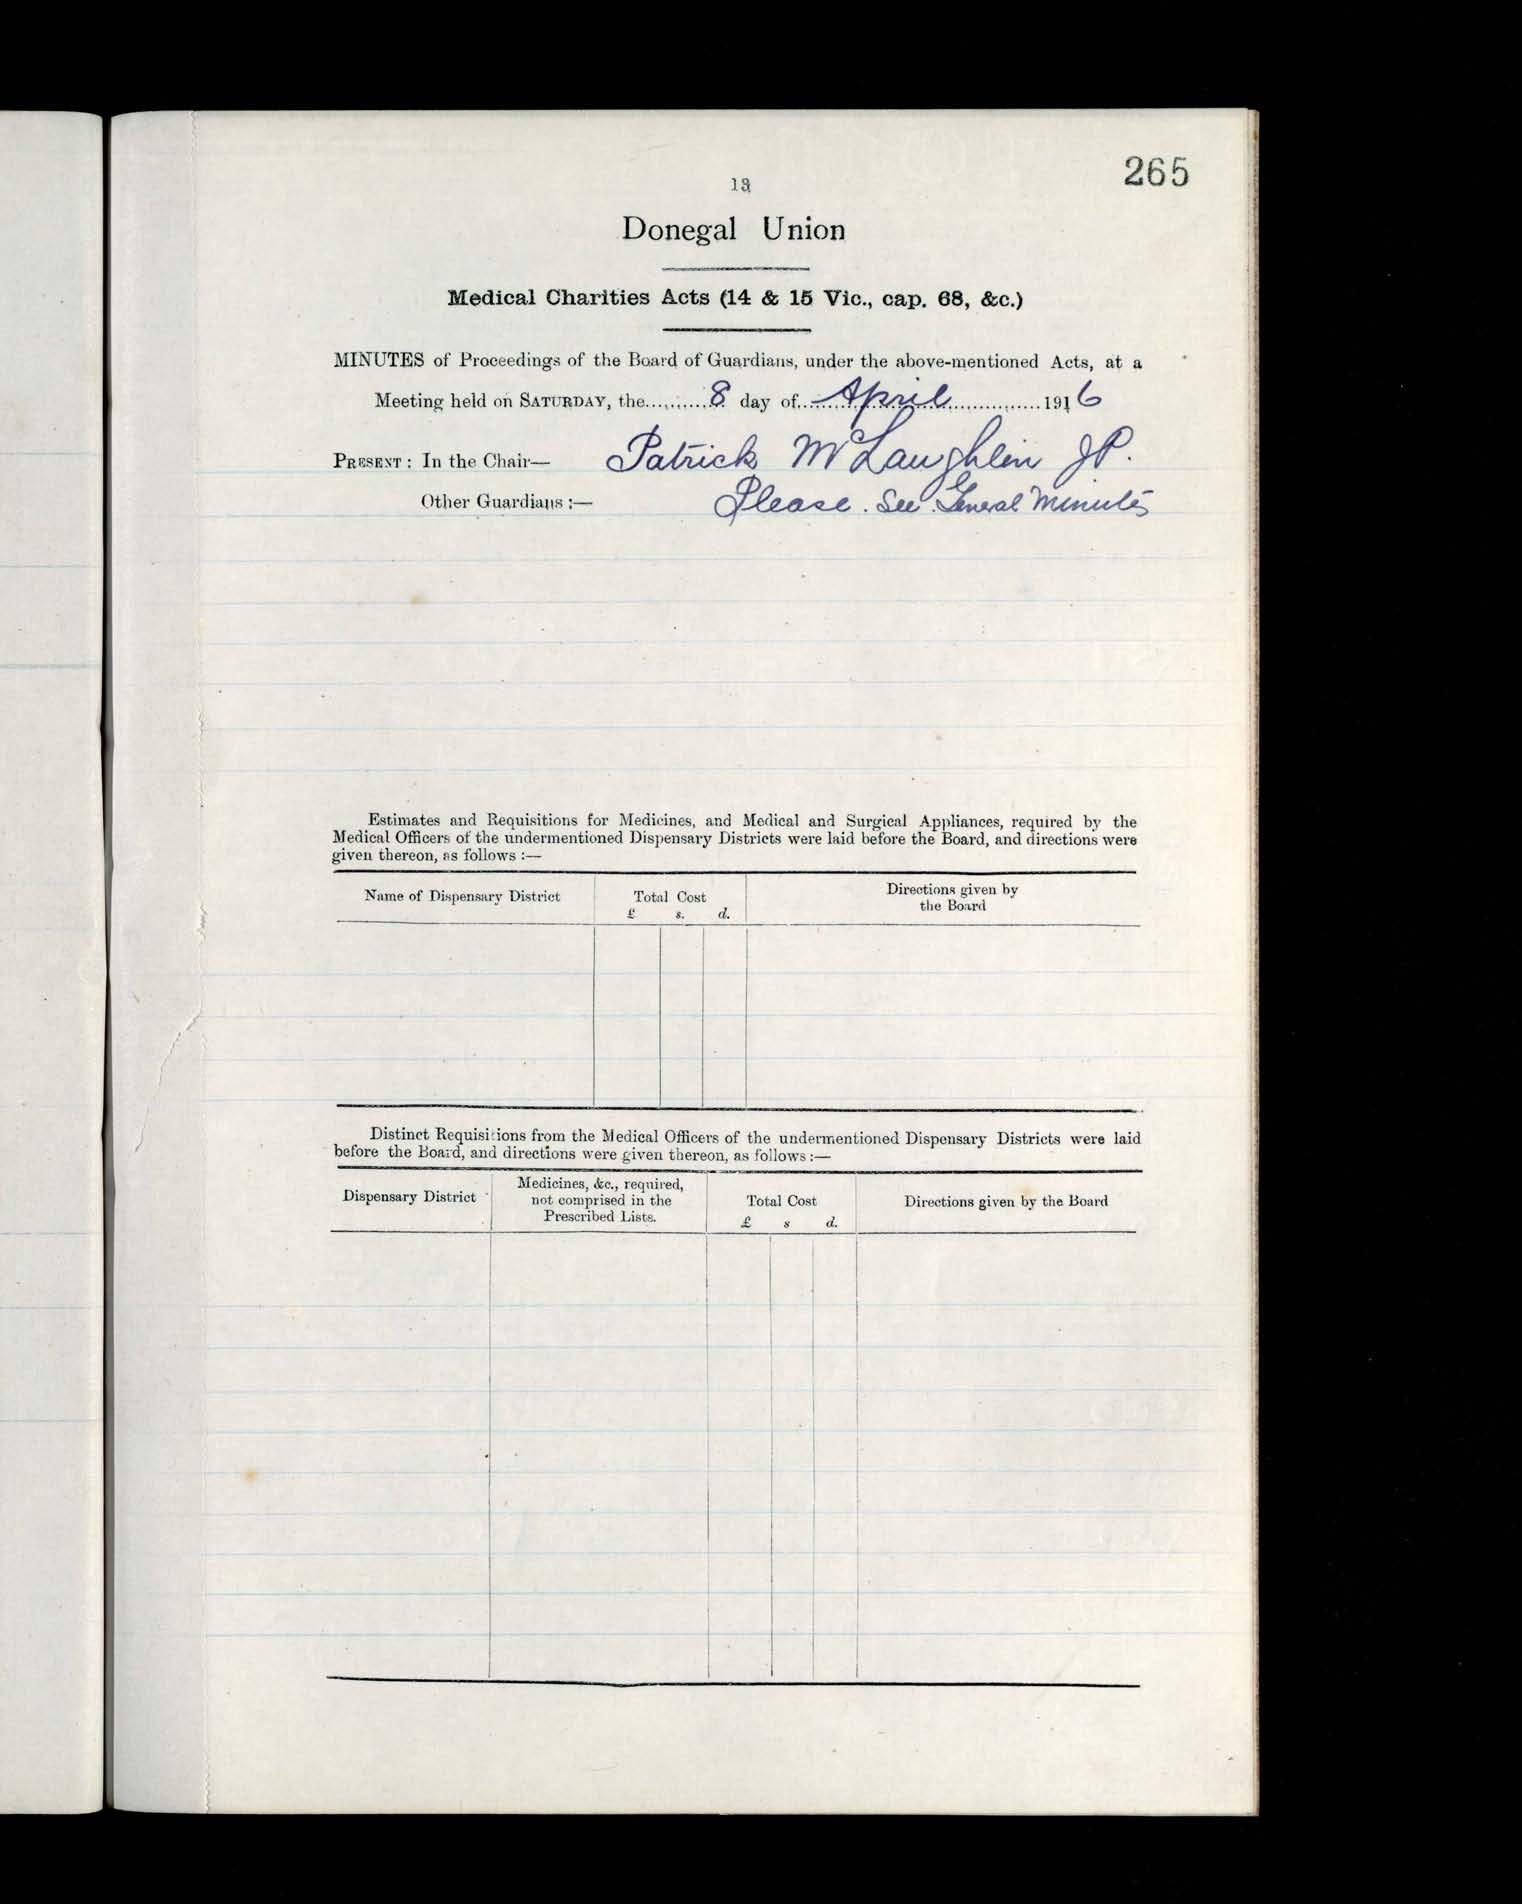 265
13
Donegal Union
Medical Charities Acts (14 & 15 Vic., cap. 68, &c.)
MINUTES of Proceedings of the Board of Guardians, under the above-mentioned Acts, at a
Meeting held on SATURDAY, the 8 day of April 1916
PRESENT: In the Chair— Patrick McLaughlin JP.
Other Guardians :— Please. See General Minutes
Estimates and Requisitions for Medicines, and Medical and Surgical Appliances, required by the
Medical Officers of the undermentioned Dispensary Districts were laid before the Board, and directions were
given thereon, as follows :—
Name of Dispensary District Total Cost Directions given by
£ s. d. the Board
Distinct Requisitions from the Medical Officers of the undermentioned Dispensary Districts were laid
before the Board, and directions were given thereon, as follows :—
Medicines, &c., required,
Dispensary District not comprised in the Total Cost Directions given by the Board
Prescribed Lists. £ s d.